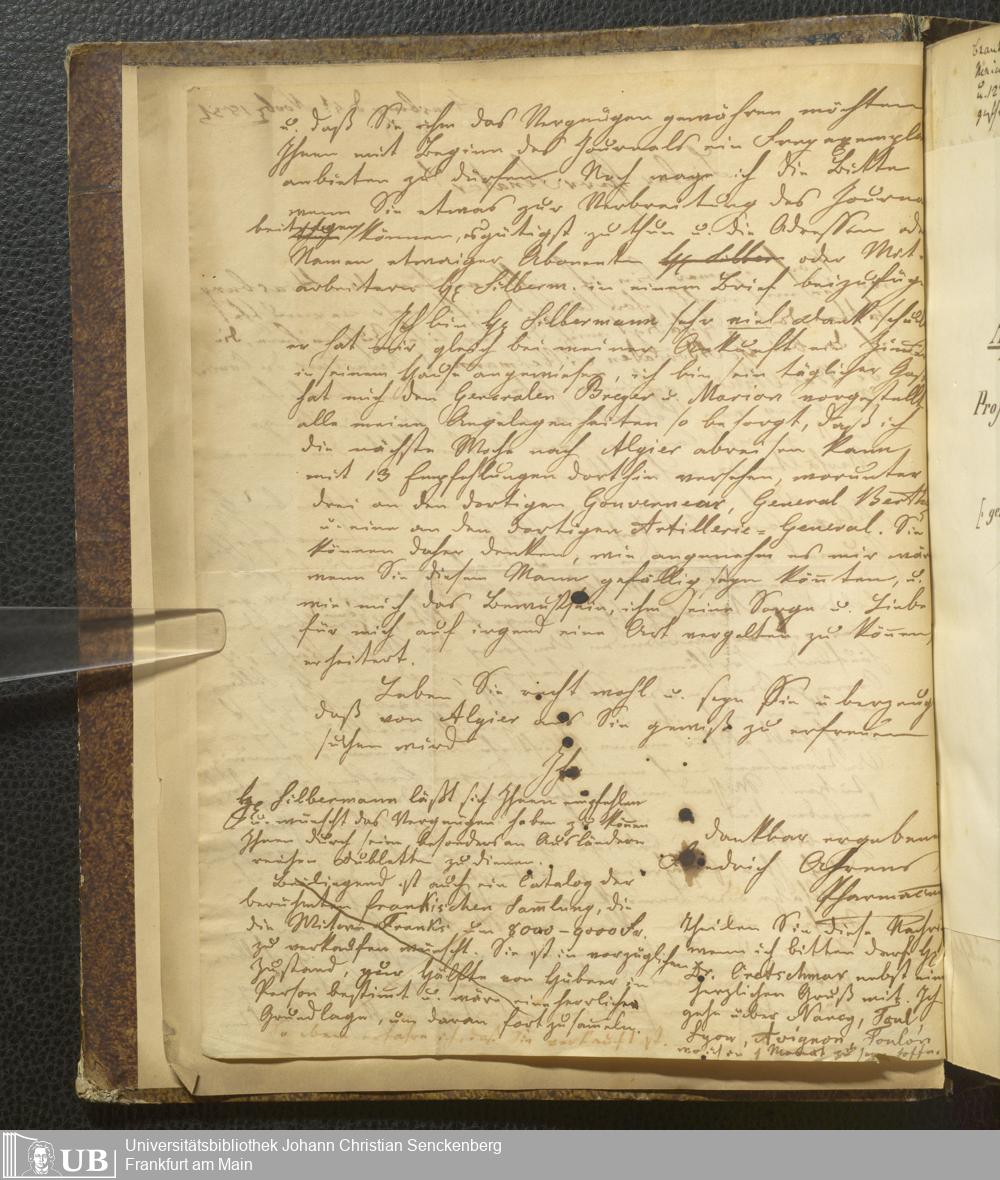 u. daß Sie ihm das Vergnügen gewähren möchten
Ihnen mit Beginn des Journals ein Freyexempla
anbieten zu dürfen. Noch wage ich die Bitte
wenn Sie etwas zur Verbreitung des Journa
beitragen können, es gütigst zu thun u. die Adressen ode
Namen etwaiger Abonenten oder Mit-
arbeiter Silberm. in einem Brief beizufüg
Ich bin Silbermann sehr vielen Dank schuld
er hat mir gleich bei meiner Ankunft ein Zimm
in seinem Hause angewiesen, ich bin sein täglicher Gas
hat mich den Generalen Breyer u. Marion vorgestellt
alle meine Angelegenheiten so besorgt, daß ich
die nächste Woche nach Algier abreisen kann
mit 13 Empfehlungen dorthin versehen, worunter
drei an den dortigen Gouverneur, General
u. eine an den dortigen Artillerie-General. Sie
können daher denken, wie angenehm es mir wär
wenn Sie diesem Mann gefällig seyn könnten, u.
wie mich das Bewußtsein, ihm seine Sorge u. Liebe
für mich auf irgend eine Art vergelten zu können,
erheitert.
Leben Sie recht wohl u. seyn Sie überzeug
daß von Algier aus Sie gewiß zu erfreuen
suchen wird
Ihr
dankbar ergeben
Friedrich Ahrens
Pharmaceu
Silbermann läßt sich Ihnen empfehlen
u. wünscht das Vergnügen haben zu können
Ihnen durch seine besonders an Ausländern
reichen Dubletten zu dienen.
Beiliegend ist auch ein Catalog der
berühmten Frankischen Sammlung, die
die Witwe Franks um 8000-9000 Fr.
zu verkaufen wünscht. Sie ist in vorzüglichem
Zustand, zur Hälfte von Hübner in
Person bestimmt u. wäre eine herrliche
Grundlage, um daran fortzusammeln.
Theilen Sie diese Nachri
wenn ich bitten darf
Dr. Cretschmar nebst
herzlichen Gruß mit. Ich
gehe über Nancy, Toul,
Lyon, Avignon, Toulon,
UB
Universitätsbibliothek Johann Christian Senckenberg
Frankfurt am Main